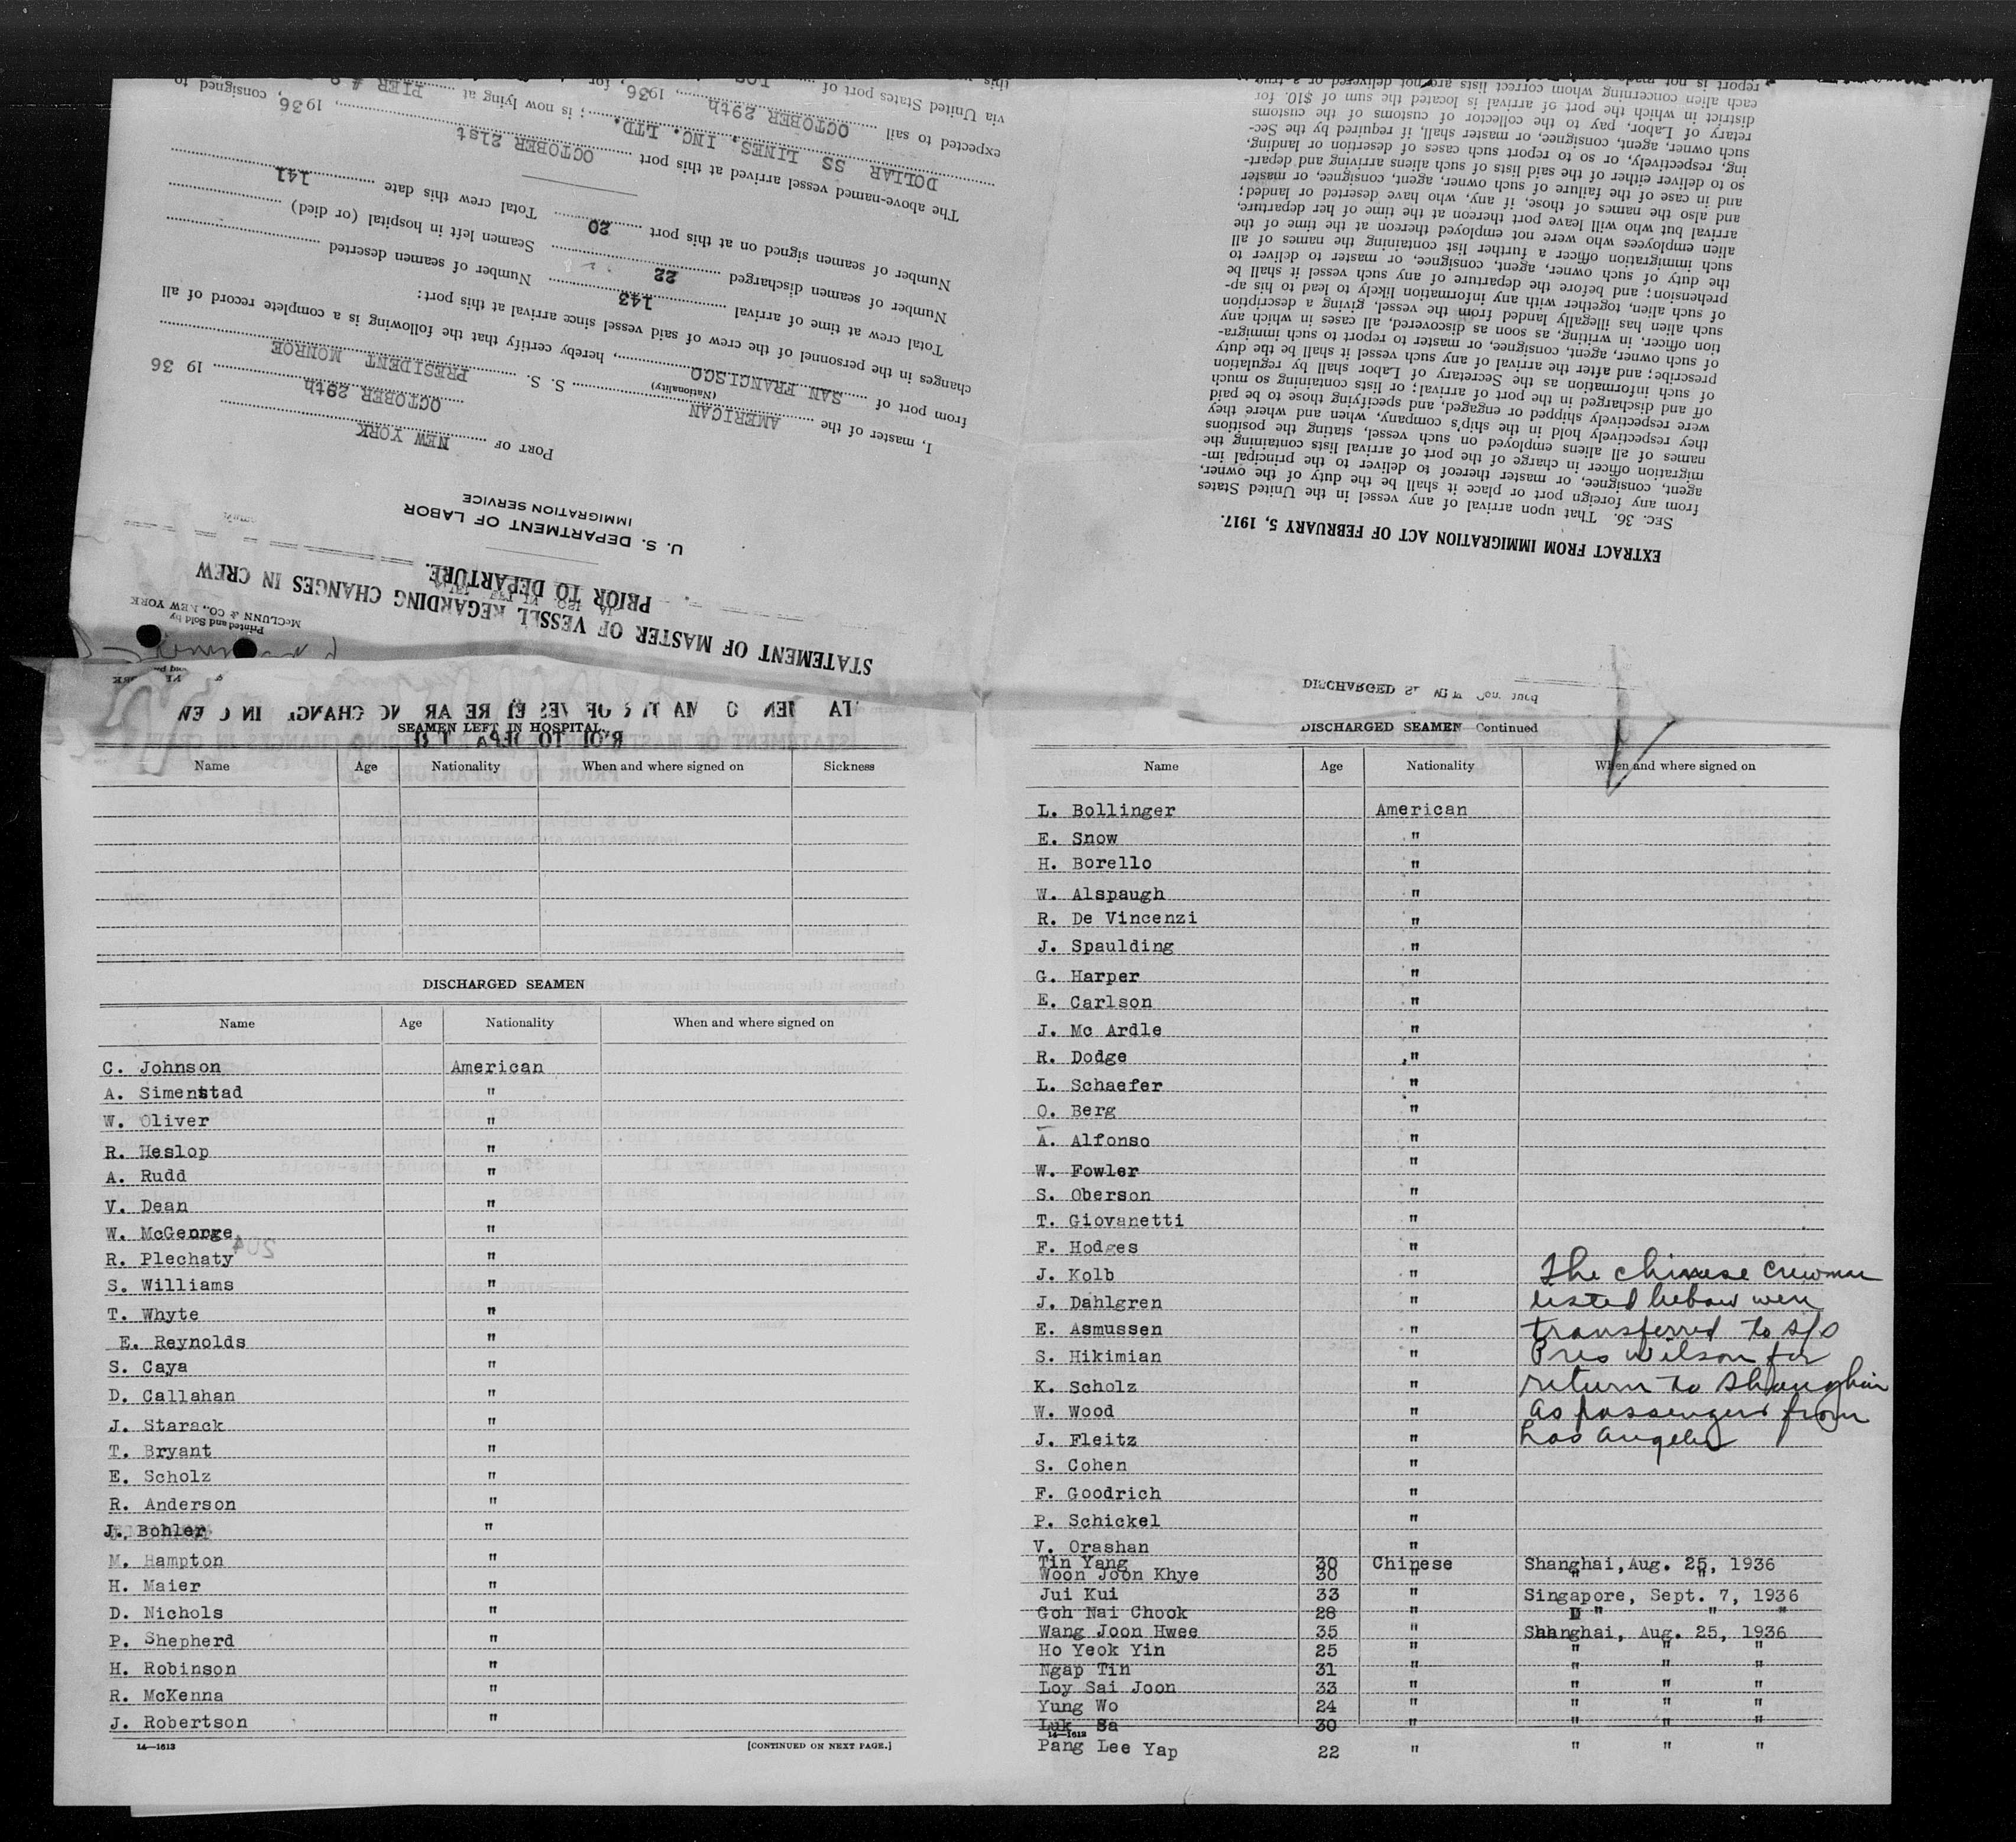 STATEMENT OF MASTER OF VESSEL REGARDING CHANGES IN CREW
PRIOR TO DEPARTURE.
Printed and Sold by
McCLUNN & CO., NEW YORK
U. S. DEPARTMENT OF LABOR
IMMIGRATION SERVICE
PORT OF NEW YORK
OCTOBER 29th 19 36
I, master of the AMERICAN S. S. PRESIDENT MONROE
(Nationality)
from port of SAN FRANCISCO, hereby certify that the following is a complete record of all
changes in the personnel of the crew of said vessel since arrival at this port:
Total crew at time of arrival 143 Number of seamen deserted
Number of seamen discharged 22 Seamen left in hospital (or died)
Number of seamen signed on at this port 20 Total crew this date 141
The above-named vessel arrived at this port OCTOBER 21st, 1936, consigned to
DOLLAR SS LINES, INC. LTD.; is now lying at PIER # 9
expected to sail OCTOBER 29th, 1936, for
via United States port of LOS
this
EXTRACT FROM IMMIGRATION ACT OF FEBRUARY 5, 1917.
SEC. 36. That upon arrival of any vessel in the United States
from any foreign port or place it shall be the duty of the owner,
agent, consignee, or master thereof to deliver to the principal im-
migration officer in charge of the port of arrival lists containing the
names of all aliens employed on such vessel, stating the positions
they respectively hold in the ship's company, when and where they
were respectively shipped or engaged, and specifying those to be paid
off and discharged in the port of arrival; or lists containing so much
of such information as the Secretary of Labor shall by regulation
prescribe; and after the arrival of any such vessel it shall be the duty
of such owner, agent, consignee, or master to report to such immigra-
tion officer, in writing, as soon as discovered, all cases in which any
such alien has illegally landed from the vessel, giving a description
of such alien, together with any information likely to lead to his ap-
prehension; and before the departure of any such vessel it shall be
the duty of such owner, agent, consignee, or master to deliver to
such immigration officer a further list containing the names of all
alien employees who were not employed thereon at the time of the
arrival but who will leave port thereon at the time of her departure,
and also the names of those, if any, who have deserted or landed;
and in case of the failure of such owner, agent, consignee, or master
so to deliver either of the said lists of such aliens arriving and depart-
ing, respectively, or so to report such cases of desertion or landing,
such owner, agent, consignee, or master shall, if required by the Sec-
retary of Labor, pay to the collector of customs of the customs
district in which the port of arrival is located the sum of $10. for
each alien concerning whom correct lists are not delivered or a true
report is not made
SEAMEN LEFT IN HOSPITAL
Name Age Nationality When and where signed on Sickness
DISCHARGED SEAMEN
Name Age Nationality When and where signed on
C. Johnson American
A. Simenstad "
W. Oliver "
R. Heslop "
A. Rudd "
V. Dean "
W. McGeorge "
R. Plechaty "
S. Williams "
T. Whyte "
E. Reynolds "
S. Caya "
D. Callahan "
J. Starack "
T. Bryant "
E. Scholz "
R. Anderson "
J. Bohler "
M. Hampton "
H. Maier "
D. Nichols "
P. Shepherd "
H. Robinson "
R. McKenna "
J. Robertson "
14—1613 [CONTINUED ON NEXT PAGE.]
DISCHARGED SEAMEN—Continued
Name Age Nationality When and where signed on
L. Bollinger American
E. Snow "
H. Borello "
W. Alspaugh "
R. De Vincenzi "
J. Spaulding "
G. Harper "
E. Carlson "
J. Mc Ardle "
R. Dodge "
L. Schaefer "
O. Berg "
A. Alfonso "
W. Fowler "
S. Oberson "
T. Giovanetti "
F. Hodges "
J. Kolb "
J. Dahlgren "
E. Asmussen "
S. Hikimian "
K. Scholz "
W. Wood "
J. Fleitz "
S. Cohen "
F. Goodrich "
P. Schickel "
V. Orashan "
The chinese crewman
listed below were
transferred to s/s
Pres Wilson for
return to Shanghai
as passengers from
Los Angeles
Tin Yang 30 Chinese Shanghai, Aug. 25, 1936
Woon Joon Khye 30 " " "
Jui Kui 33 " Singapore, Sept. 7, 1936
Goh Nai Chook 28 " " " "
Wang Joon Hwee 35 " Shanghai, Aug. 25, 1936
Ho Yeok Yin 25 " " " "
Ngap Tin 31 " " " "
Loy Sai Joon 33 " " " "
Yung Wo 24 " " " "
Luk Sa 30 " " " "
14—1613
Pang Lee Yap 22 " " " "